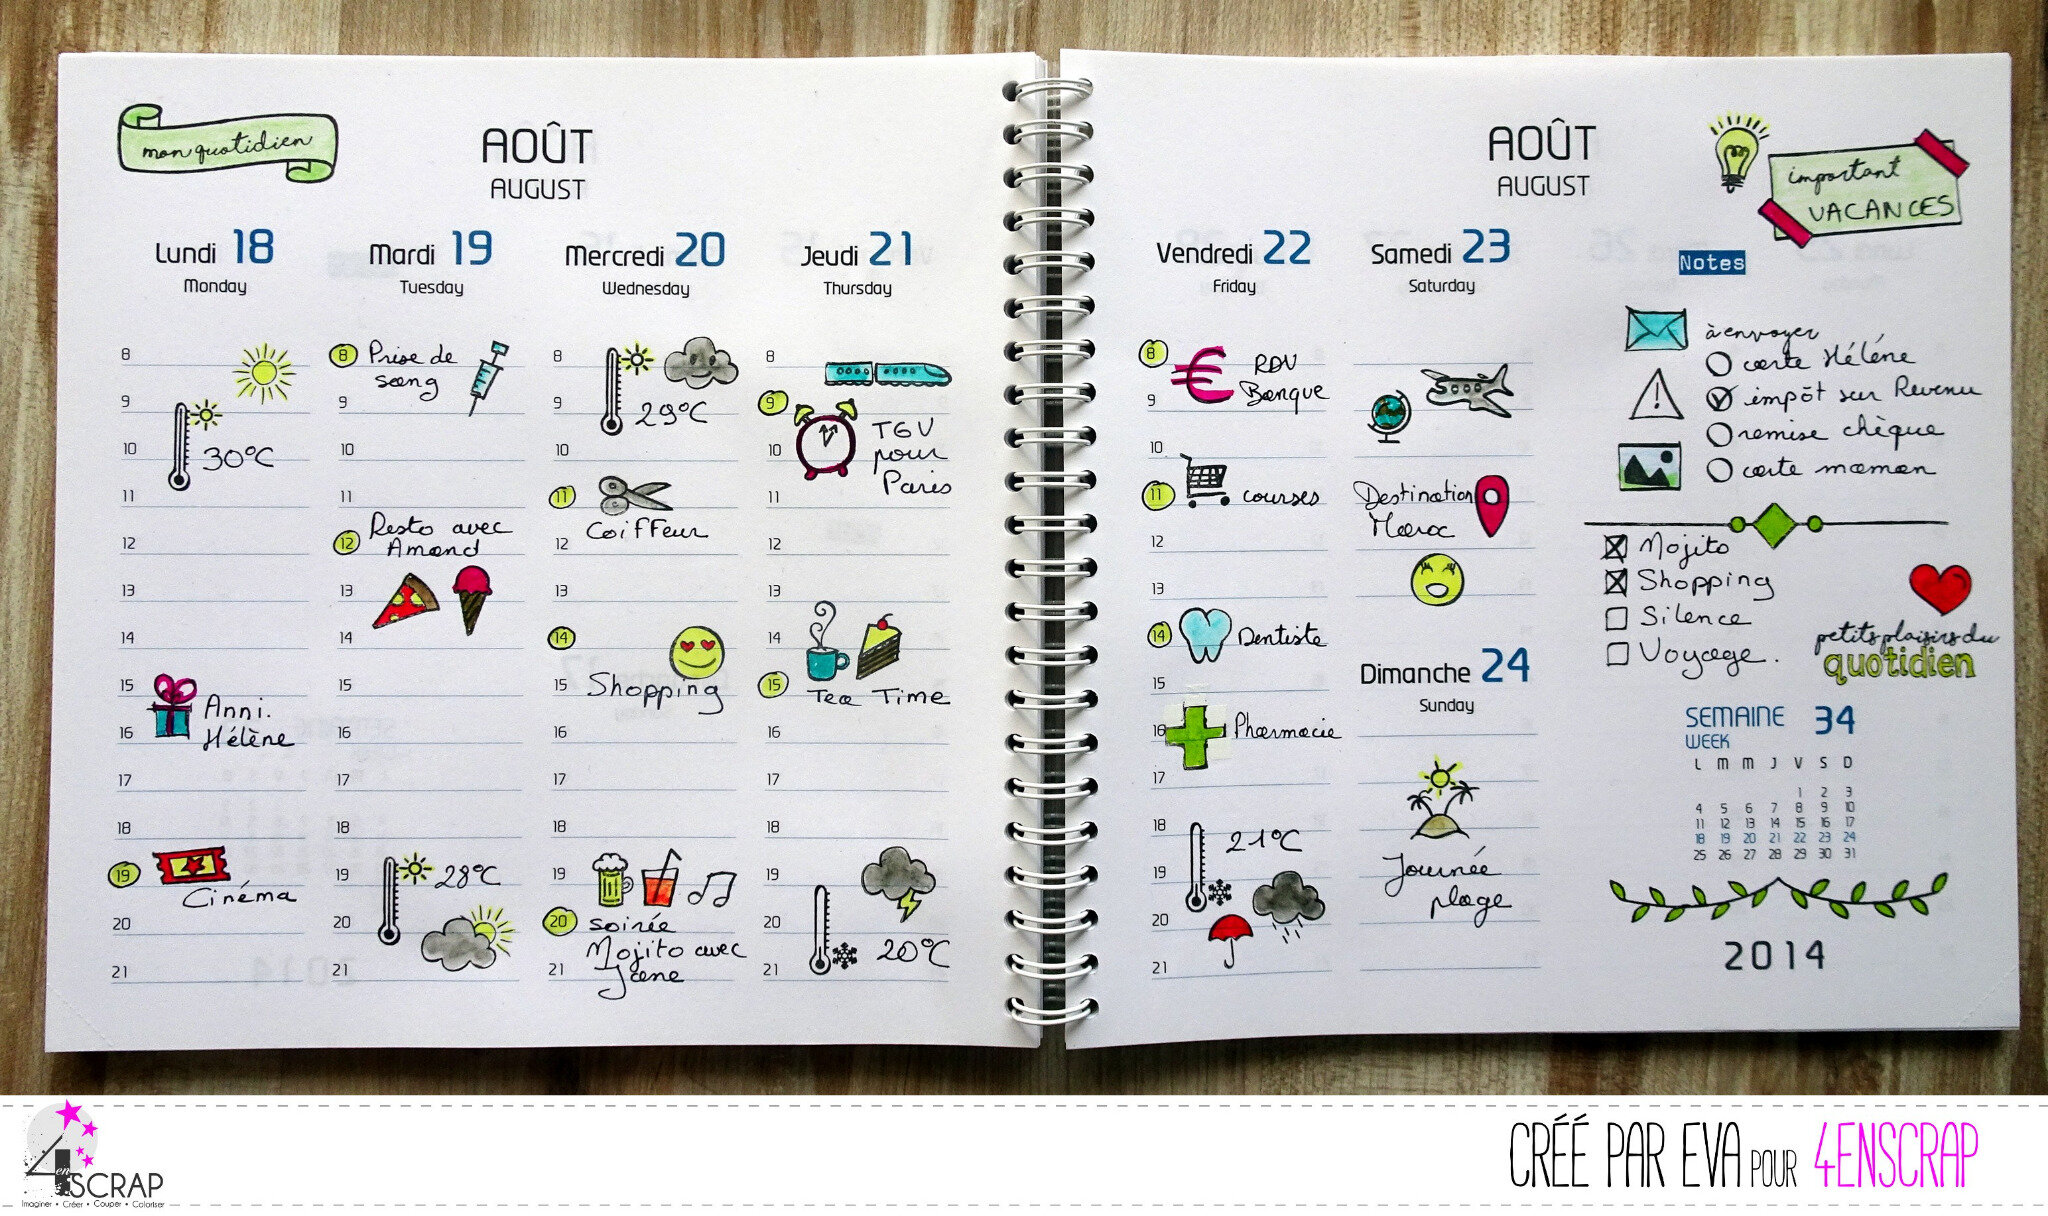 mon quotidien
AOÛT
AUGUST
Lundi 18
Monday
8
9
30°C
10
11
12
13
14
15
Anni.
Hélène
16
17
18
19
Cinéma
20
21
Mardi 19
Tuesday
8 Prise de
sang
9
10
11
Resto avec
12 Amand
13
14
15
16
17
18
19 28°C
20
21
Mercredi 20
Wednesday
8
9 29°C
10
11
Coiffeur
12
13
14
15 Shopping
16
17
18
19
20 soirée
Mojito avec
21 Jane
Jeudi 21
Thursday
8
9
TGV
10 pour
Paris
11
12
13
14
15 Tea Time
16
17
18
19
20
20°C
21
AOÛT
AUGUST
Vendredi 22
Friday
8 RDV
Banque
9
10
11 courses
12
13
14 Dentiste
15
16 Pharmacie
17
18 21°C
19
20
21
Samedi 23
Saturday
Destination
Maroc
Dimanche 24
Sunday
Journée
plage
important
VACANCES
Notes
à envoyer
carte Hélène
impôt sur Revenu
remise chèque
carte maman
Mojito
Shopping
Silence
Voyage.
petits plaisirs du
quotidien
SEMAINE 34
WEEK
L M M J V S D
1 2 3
4 5 6 7 8 9 10
11 12 13 14 15 16 17
18 19 20 21 22 23 24
25 26 27 28 29 30 31
2014
4 en SCRAP
Imaginer • Créer • Couper • Coloriser
CRÉÉ PAR EVA POUR 4ENSCRAP